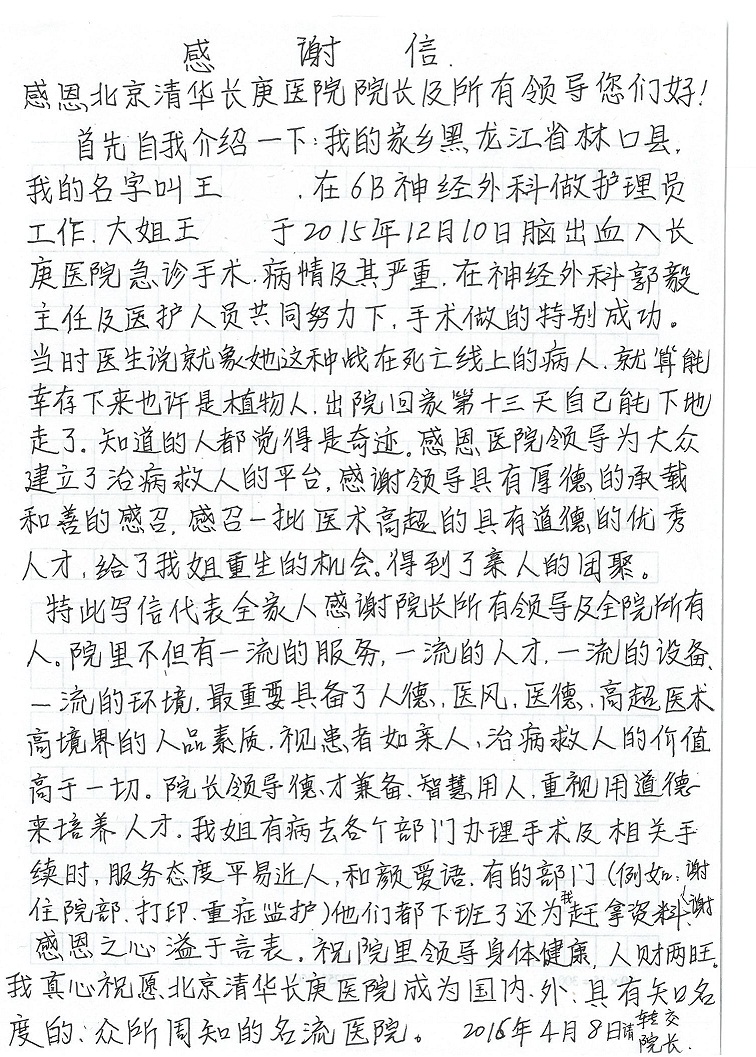 感 谢 信.
感恩北京清华长庚医院院长及所有领导您们好!
首先自我介绍一下:我的家乡黑龙江省林口县,
我的名字叫王 .在6B神经外科做护理员
工作.大姐王 于2015年12月10日脑出血入长
庚医院急诊手术.病情及其严重,在神经外科郭毅
主任及医护人员共同努力下,手术做的特别成功。
当时医生说就象她这种战在死亡线上的病人.就算能
幸存下来也许是植物人.出院回家第十三天自己能下地
走了。知道的人都觉得是奇迹。感恩医院领导为大众
建立了治病救人的平台,感谢领导具有厚德的承载
和善的感召,感召一批医术高超的具有道德的优秀
人才,给了我姐重生的机会。得到了亲人的团聚。
特此写信代表全家人感谢院长所有领导及全院所有
人。院里不但有一流的服务,一流的人才,一流的设备、
一流的环境,最重要具备了人德,医风,医德,高超医术
高境界的人品素质.视患者如亲人,治病救人的价值
高于一切。院长领导德、才兼备、智慧用人,重视用道德
来培养人才.我姐有病去各个部门办理手术及相关手
续时,服务态度平易近人,和颜爱语.有的部门(例如:谢
住院部.打印.重症监护)他们都下班了还为我赶拿资料(谢
感恩之心溢于言表。祝院里领导身体健康,人财两旺。
我真心祝愿北京清华长庚医院成为国内、外、具有知名
度的:众所周知的名流医院。 2016年4月8日请转交
院长.